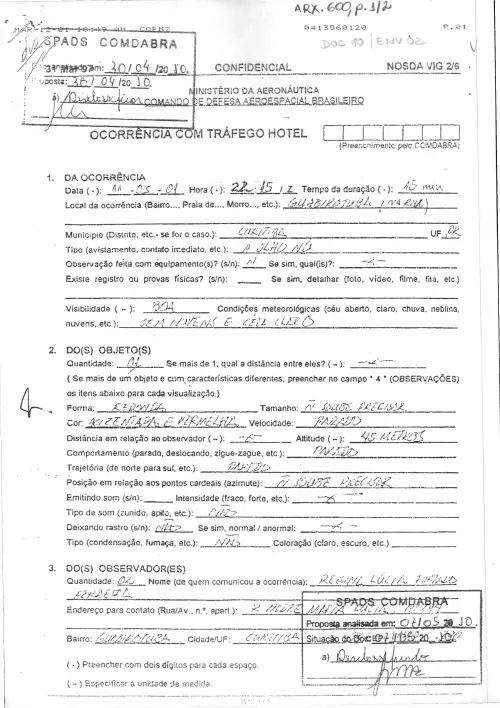 ARX. 600, p. 1/2
0413560120 P.01
SPADS COMDABRA
DOC 10 | ENV 02
em: 30/04/2010.
CONFIDENCIAL NOSDA VIG 2/6
Proposta: 30/04/2010.
MINISTÉRIO DA AERONÁUTICA
a)
COMANDO DE DEFESA AEROESPACIAL BRASILEIRO
OCORRÊNCIA COM TRÁFEGO HOTEL
(Preenchimento pelo COMDABRA)
1. DA OCORRÊNCIA
Data (·): 11-03-01 Hora (·): 22:15 / Z Tempo da duração (·): 15 min
Local da ocorrência (Bairro..., Praia de..., Morro..., etc.): GUABIROTUBA
Município (Distrito, etc.- se for o caso.): CURITIBA UF PR
Tipo (avistamento, contato imediato, etc.): A OLHO NÚ
Observação feita com equipamento(s)? (s/n): N Se sim, qual(is)?:
Existe registro ou provas físicas? (s/n): Se sim, detalhar (foto, vídeo, filme, fita, etc.)
Visibilidade (~): BOA Condições meteorológicas (céu aberto, claro, chuva, neblina,
nuvens, etc.): SEM NUVENS E CÉU CLARO
2. DO(S) OBJETO(S)
Quantidade: 01 Se mais de 1, qual a distância entre eles? (~):
( Se mais de um objeto e com características diferentes, preencher no campo " 4 " (OBSERVAÇÕES)
os itens abaixo para cada visualização.)
Forma: REDONDA Tamanho: N SOUBE PRECISAR
Cor: ACIZENTADA E VERMELHA Velocidade: PARADO
Distância em relação ao observador (~): Altitude (~): 45 METROS
Comportamento (parado, deslocando, zigue-zague, etc.): PARADO
Trajetória (de norte para sul, etc.): PARADO
Posição em relação aos pontos cardeais (azimute): N SOUBE PRECISAR
Emitindo som (s/n): Intensidade (fraco, forte, etc.):
Tipo de som (zunido, apito, etc.): NÃO
Deixando rastro (s/n): NÃO Se sim, normal / anormal:
Tipo (condensação, fumaça, etc.): NÃO Coloração (claro, escuro, etc.)
3. DO(S) OBSERVADOR(ES)
Quantidade: Nome (de quem comunicou a ocorrência): LÚCIA
Endereço para contato (Rua/Av., n.º, apart.): R.
SPADS COMDABRA
Proposta analisada em: 01/05 2010.
Bairro: GUABIROTUBA Cidade/UF: CURITIBA
Situação do Doc:
a)
(·) Preencher com dois dígitos para cada espaço.
(~) Especificar a unidade de medida.